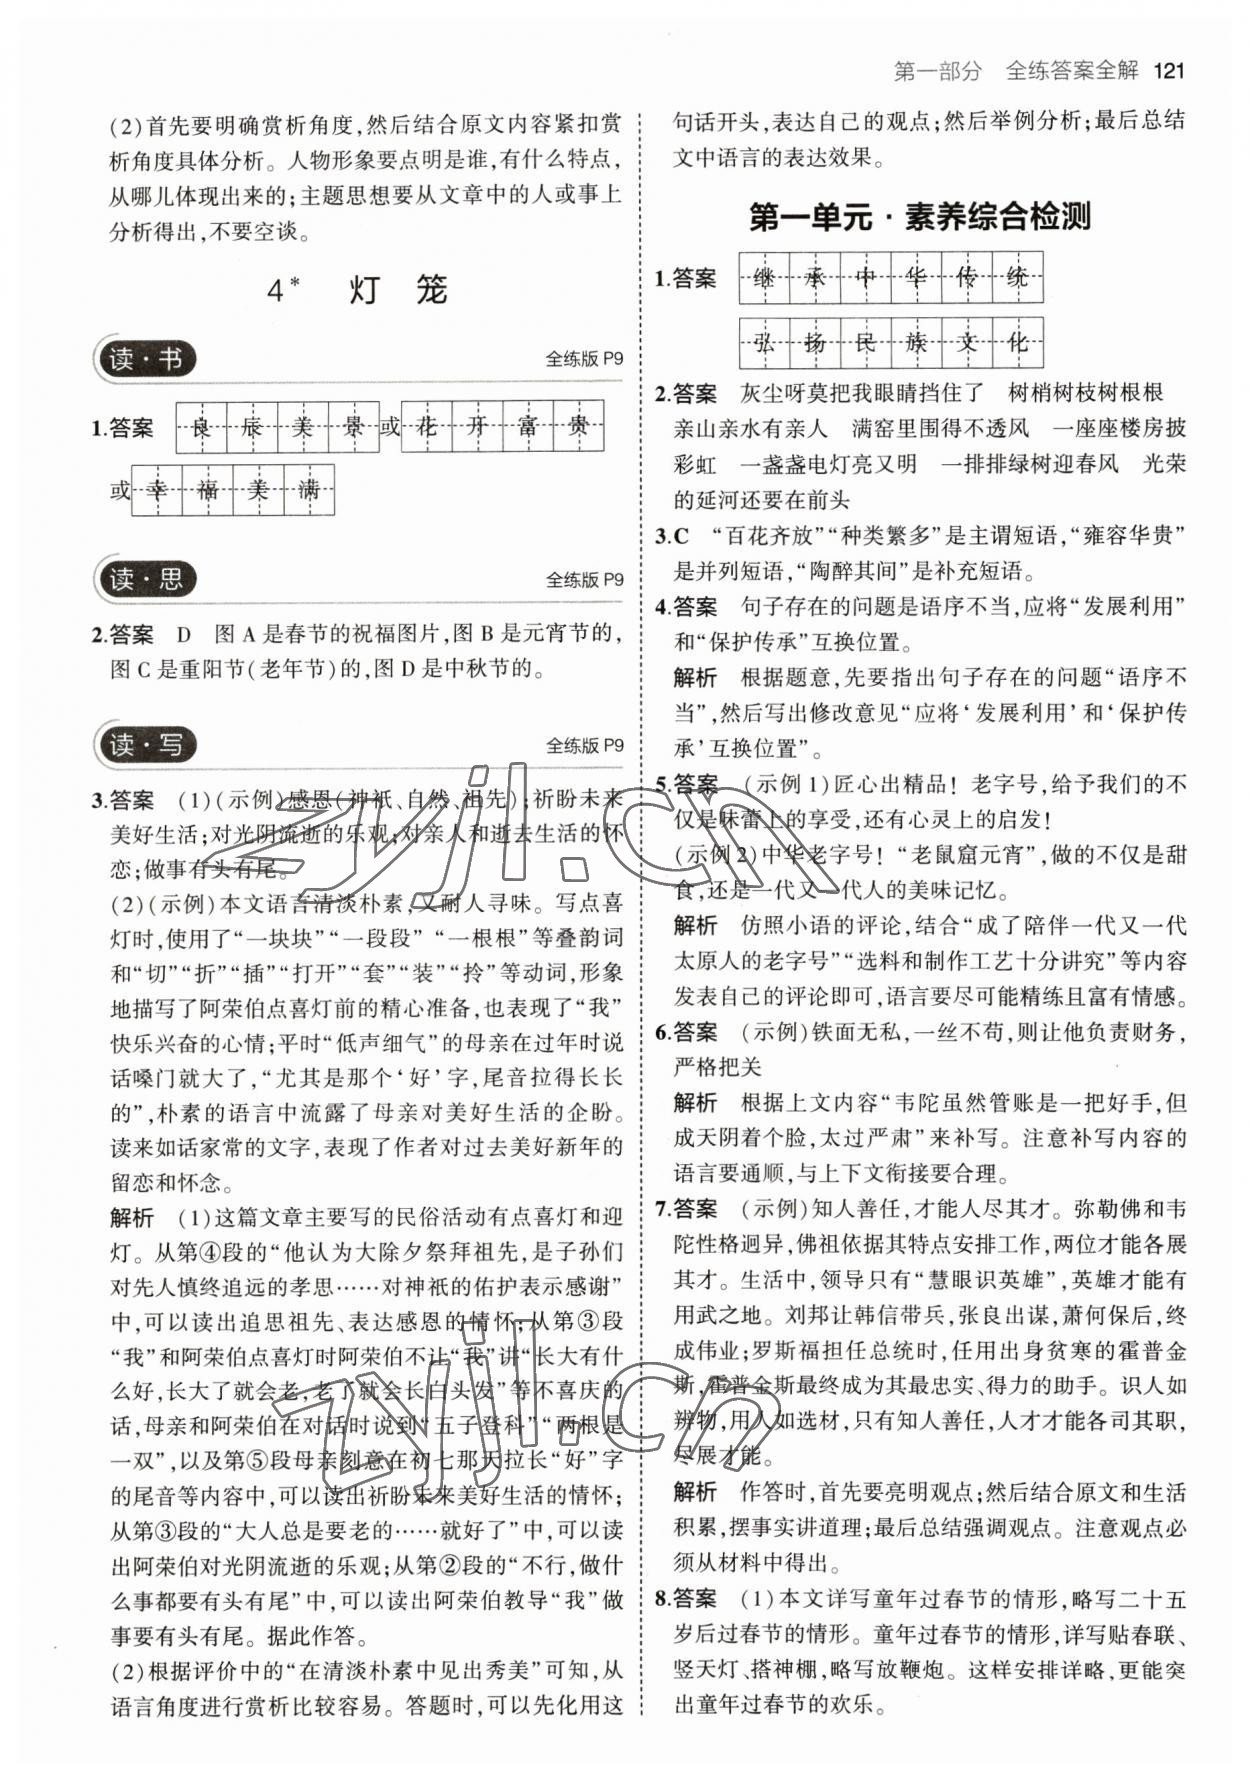 第一部分　全练答案全解　121
(2)首先要明确赏析角度,然后结合原文内容紧扣赏
析角度具体分析。人物形象要点明是谁,有什么特点,
从哪儿体现出来的;主题思想要从文章中的人或事上
分析得出,不要空谈。
4*　灯　笼
读·书　全练版 P9
1.答案　良辰美景或花开富贵
或幸福美满
读·思　全练版 P9
2.答案　D　图 A 是春节的祝福图片,图 B 是元宵节的,
图 C 是重阳节(老年节)的,图 D 是中秋节的。
读·写　全练版 P9
3.答案　(1)(示例)感恩(神祇、自然、祖先);祈盼未来
美好生活;对光阴流逝的乐观;对亲人和逝去生活的怀
恋;做事有头有尾。
(2)(示例)本文语言清淡朴素,又耐人寻味。写点喜
灯时,使用了“一块块”“一段段”“一根根”等叠韵词
和“切”“折”“插”“打开”“套”“装”“拎”等动词,形象
地描写了阿荣伯点喜灯前的精心准备,也表现了“我”
快乐兴奋的心情;平时“低声细气”的母亲在过年时说
话嗓门就大了,“尤其是那个‘好’字,尾音拉得长长
的”,朴素的语言中流露了母亲对美好生活的企盼。
读来如话家常的文字,表现了作者对过去美好新年的
留恋和怀念。
解析　(1)这篇文章主要写的民俗活动有点喜灯和迎
灯。从第④段的“他认为大除夕祭拜祖先,是子孙们
对先人慎终追远的孝思……对神祇的佑护表示感谢”
中,可以读出追思祖先、表达感恩的情怀;从第③段
“我”和阿荣伯点喜灯时阿荣伯不让“我”讲“长大有什
么好,长大了就会老,老了就会长白头发”等不喜庆的
话,母亲和阿荣伯在对话时说到“五子登科”“两根是
一双”,以及第⑤段母亲刻意在初七那天拉长“好”字
的尾音等内容中,可以读出祈盼未来美好生活的情怀;
从第③段的“大人总是要老的……就好了”中,可以读
出阿荣伯对光阴流逝的乐观;从第②段的“不行,做什
么事都要有头有尾”中,可以读出阿荣伯教导“我”做
事要有头有尾。据此作答。
(2)根据评价中的“在清淡朴素中见出秀美”可知,从
语言角度进行赏析比较容易。答题时,可以先化用这
句话开头,表达自己的观点;然后举例分析;最后总结
文中语言的表达效果。
第一单元·素养综合检测
1.答案　继承中华传统
弘扬民族文化
2.答案　灰尘呀莫把我眼睛挡住了　树梢树枝树根根
亲山亲水有亲人　满窑里围得不透风　一座座楼房披
彩虹　一盏盏电灯亮又明　一排排绿树迎春风　光荣
的延河还要在前头
3.C　“百花齐放”“种类繁多”是主谓短语,“雍容华贵”
是并列短语,“陶醉其间”是补充短语。
4.答案　句子存在的问题是语序不当,应将“发展利用”
和“保护传承”互换位置。
解析　根据题意,先要指出句子存在的问题“语序不
当”,然后写出修改意见“应将‘发展利用’和‘保护传
承’互换位置”。
5.答案　(示例 1)匠心出精品！老字号,给予我们的不
仅是味蕾上的享受,还有心灵上的启发！
(示例 2)中华老字号！“老鼠窟元宵”,做的不仅是甜
食,还是一代又一代人的美味记忆。
解析　仿照小语的评论,结合“成了陪伴一代又一代
太原人的老字号”“选料和制作工艺十分讲究”等内容
发表自己的评论即可,语言要尽可能精练且富有情感。
6.答案　(示例)铁面无私,一丝不苟,则让他负责财务,
严格把关
解析　根据上文内容“韦陀虽然管账是一把好手,但
成天阴着个脸,太过严肃”来补写。注意补写内容的
语言要通顺,与上下文衔接要合理。
7.答案　(示例)知人善任,才能人尽其才。弥勒佛和韦
陀性格迥异,佛祖依据其特点安排工作,两位才能各展
其才。生活中,领导只有“慧眼识英雄”,英雄才能有
用武之地。刘邦让韩信带兵,张良出谋,萧何保后,终
成伟业;罗斯福担任总统时,任用出身贫寒的霍普金
斯,霍普金斯最终成为其最忠实、得力的助手。识人如
辨物,用人如选材,只有知人善任,人才才能各司其职,
尽展才能。
解析　作答时,首先要亮明观点;然后结合原文和生活
积累,摆事实讲道理;最后总结强调观点。注意观点必
须从材料中得出。
8.答案　(1)本文详写童年过春节的情形,略写二十五
岁后过春节的情形。童年过春节的情形,详写贴春联、
竖天灯、搭神棚,略写放鞭炮。这样安排详略,更能突
出童年过春节的欢乐。
zyjl.cn
zyjl.cn